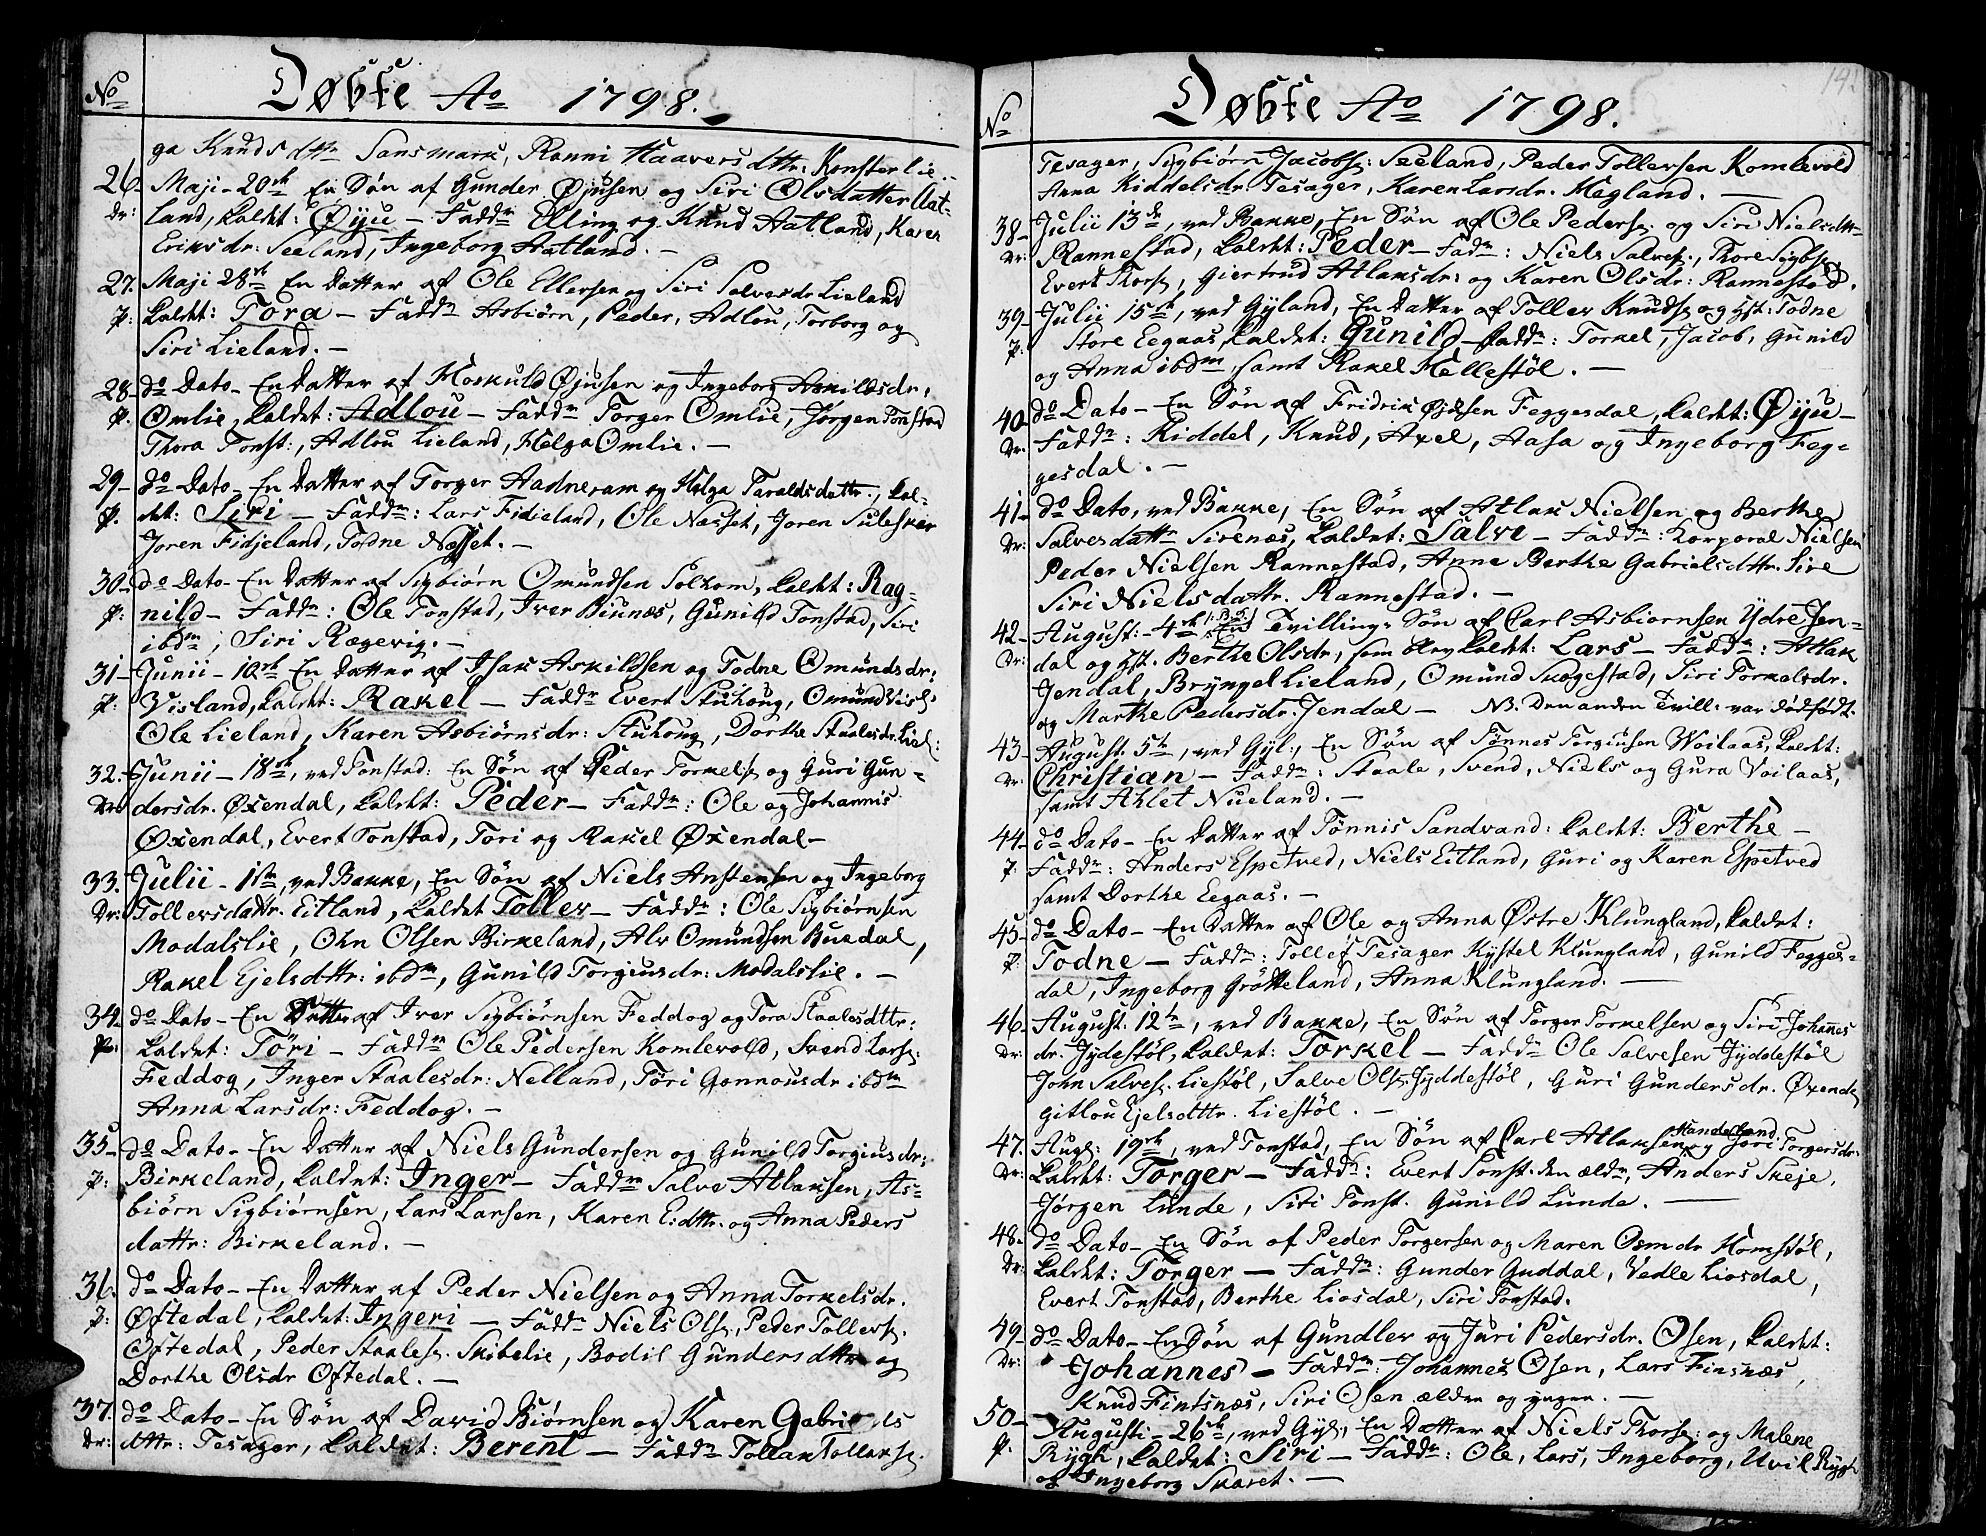 No
Døbte Ao 1798.
ga Knudsdttr Sansmark, Ranni Haaversdttr: Konsterlie..
26. Maji - 20de En Søn af Gunder Øjusen og Siri Olsdatter Aat-
Dr: land, kaldet: Øyu - Faddr Elling og Knud Aatland, Karen
Eriksdr: Seeland, Ingeborg Aatland. -
27. Maji 28de En Datter af Ole Ellersen og Siri Salvesdr Lieland
p: kaldet: Tora - Faddr Asbiørn, Peder, Adlou, Torborg og
Siri Lieland. -
28 - do Dato - En Datter af Hoskuld Øjusen og Ingeborg Askildsdr:
p. Omlie, kaldet: Adlou - Faddr Torger Omlie, Jørgen Tonstad
Thora Tonst:, Adlou Lieland, Helga Omlie. -
29 - do Dato - En Datter af Torger Aadneram og Helga Taraldsdattr., kal-
p. det: Siri - Faddr: Lars Fidieland, Ole Næsset, Joren Sulesker
Joren Fidjeland, Todne Næsset. -
30 - do Dato - En Datter af Sigbiørn Omundsen Solhom, kaldet: Rag-
p: nild - Faddr: Ole Tonstad, Iver Biunæs, Gunild Tonstad, Siri
ibdm; Siri Rægevig. -
31 - Junii - 10de En Datter af Isak Askildsen og Todne Omundsdr:
p: Visland, kaldet: Rakel - Faddr Evert Stuhoug, Omund Visl.
Ole Lieland, Karen Asbiørnsdr: Stuhoug, Dorthe Staalesdr Liel:
32. Junii - 18de, ved Tonstad: En Søn af Peder Torkels. og Guri Gun-
Dr: dersdr. Øxendal, kaldet: Peder - Faddr: Ole og Johannis
Øxendal, Evert Tonstad, Tori og Rakel Øxendal -
33. Julii - 1ste, ved Bakke, En Søn af Niels Anstensen og Ingeborg
Dr: Tollersdattr. Eitland, kaldet Toller - Faddr: Ole Sigbiørnsen
Modalslie, Ohn Olsen Birkeland, Alv Omundsen Buedal,
Rakel Ejelsdttr: ibdm, Gunild Torgiusdr: Modalslie. -
34. do Dato - En Datter af Iver Sigbiørnsen Feddog og Tora Staalesdttr:
p: kaldet: Töri - Faddr Ole Pedersen Komlevold, Svend Lars.
Feddog, Inger Staalesdr: Nelland, Töri Gonnousdr ibdm
Anna Larsdr: Feddog. -
35 do Dato - En Datter af Niels Gundersen og Gunild Torgiusdr:
p: Birkeland, kaldet: Inger - Faddr Salve Atlaksen, As-
biörn Sigbiørnsen, Lars Larsen, Karen E:dttr. og Anna Peders
dattr: Birkeland. -
36. do Dato - En Datter af Peder Nielsen og Anna Torkelsdr.
p: Øftedal, kaldet: Ingeri - Faddr Niels Ols., Peder Tollers.
Oftedal, Peder Staales. Skibelie, Bodil Gundersdttr og
Dorthe Olsdr Oftedal. -
37. do Dato - En Søn af David Biørnsen og Karen Gabriels
Dr: dttr: Tesager, kaldet: Berent - Faddr Tollak Tollaks.
141
No
Døbte Ao 1798.
Tesager, Sigbiørn Jacobs: Seeland, Peder Tollevsen Komlevold
Anna Kiddelsdr. Tesager, Karen Larsdr. Magland. -
38 - Julii 13de, ved Bakke, En Søn af Ole Peders. og Siri Nielsdttr
Dr: Rannestad, kaldet: Peder - Faddr: Niels Salves., Thore Sigbs.
Evert Thors., Giertrud Atlaksdr: og Karen Olsdr: Rannestad.
39 - Julii 15de, ved Gyland, En Datter af Toller Knuds. og Hst: Todne
p: Store Eegaas, kaldet: Gunild - Faddr: Torkel, Jacob, Gunild
og Anna ibdm samt Rakel Hellestøl. -
40 do Dato - En Søn af Fridrik Øjusen Feggesdal, kaldet: Øyu -
Dr. Faddr: Kiddel, Knud, Axel, Aasa og Ingeborg Feg-
gesdal. -
41 - do Dato, ved Bakke, En Søn af Atlak Nielsen og Berthe
Dr: Salvesdattr Sirenæs, kaldet: Salve - Faddr: Korporal Nielsen
Peder Nielsen Rannestad, Anne Berthe Gabrielsdttr. Sire
Siri Nielsdattr. Rannestad. -
42 - August: - 4de En Tvilling-Søn af Carl Asbiørnsen Ydre Jen-
Dr: dal og Hst. Berthe Olsdr, som blev kaldet: Lars - Faddr: Atlak
Jendal, Bryngel Lieland, Omund Skogestad, Siri Torkelsdr.
og Marthe Pedersdr. Jendal - NB. Den anden Tvill: var dødfødt.
43 - August. 5te, ved Gyl:, En Søn af Tønnes Torgiusen Woilaas, kaldet:
Dr: Christian - Faddr: Staale, Svend, Niels og Gura Voilaas,
samt Ahlet Nueland. -
44 - do Dato - En Datter af Tønnis Sandvand: kaldet: Berthe -
p: Faddr: Anders Espetved, Niels Eitland, Guri og Karen Espetved
samt Dorthe Eegaas. -
45 - do Dato - En Datter af Ole og Anna Østre Klungland, kaldet:
p: Todne - Faddr: Tollef Tesager Kystel Klungland, Gunild Fegges-
dal, Ingeborg Grötteland, Anna Klungland. -
46 - August. 12te, ved Bakke, En Søn af Torger Torkelsen og Siri Johanes
Dr: dr. Jydestøl, kaldet: Torkel - Faddr Ole Salvesen Jyddestøl
John Salves. Liestøl, Salve Ols. Jyddestøl, Guri Gundersdr. Øxendal
Gitlou Ejelsdttr. Liestøl. -
47. Aug: 19de, ved Tonstad, En Søn af Carl Atlaksen Handeland og Jori Torgersdr:
Dr: kaldet: Torger - Faddr: Evert Tonst. den ældr, Anders Skeje,
Jørgen Lunde, Siri Tonst. Gunild Lunde. -
48. do Dato - En Søn af Peder Torgersen og Maren Osmdr Homstøl,
Dr: kaldet: Torger - Faddr: Gunder Guddal, Vedle Liosdal,
Evert Tonstad, Berthe Liosdal, Siri Tonstad.
49 - do Dato - En Søn af Gundlev og Juri Pedersdr. Osen, kaldet:
Dr: Johannes - Faddr: Johannes Osen, Lars Finsnæs,
Knud Fintsnæs, Siri Osen ældre og ynger. -
50 - Augusti - 26de, ved Gyl:, En Datter af Niels Thors: og Malene
p. Rygh, kaldet: Siri - Faddr: Ole, Lars, Ingeborg, Uvil Rygh
og Ingeborg Skaret. -